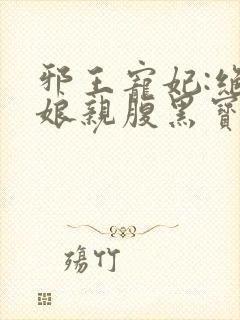 邪王寵妃:絕
娘親腹黑寶
殤竹